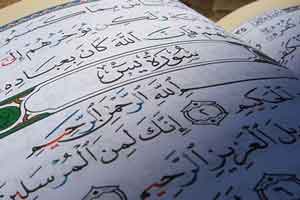 يُؤَخِّرُهُمْ
فَإِنَّ اللَّهَ كَانَ بِعِبَادِهِ
سُورَةُ يسٓ
اللَّهِ الرَّحْمَٰنِ الرَّحِيمِ
الْحَكِيمِ ٢ إِنَّكَ لَمِنَ الْمُرْسَلِينَ
الْعَزِيزِ الرَّحِيمِ